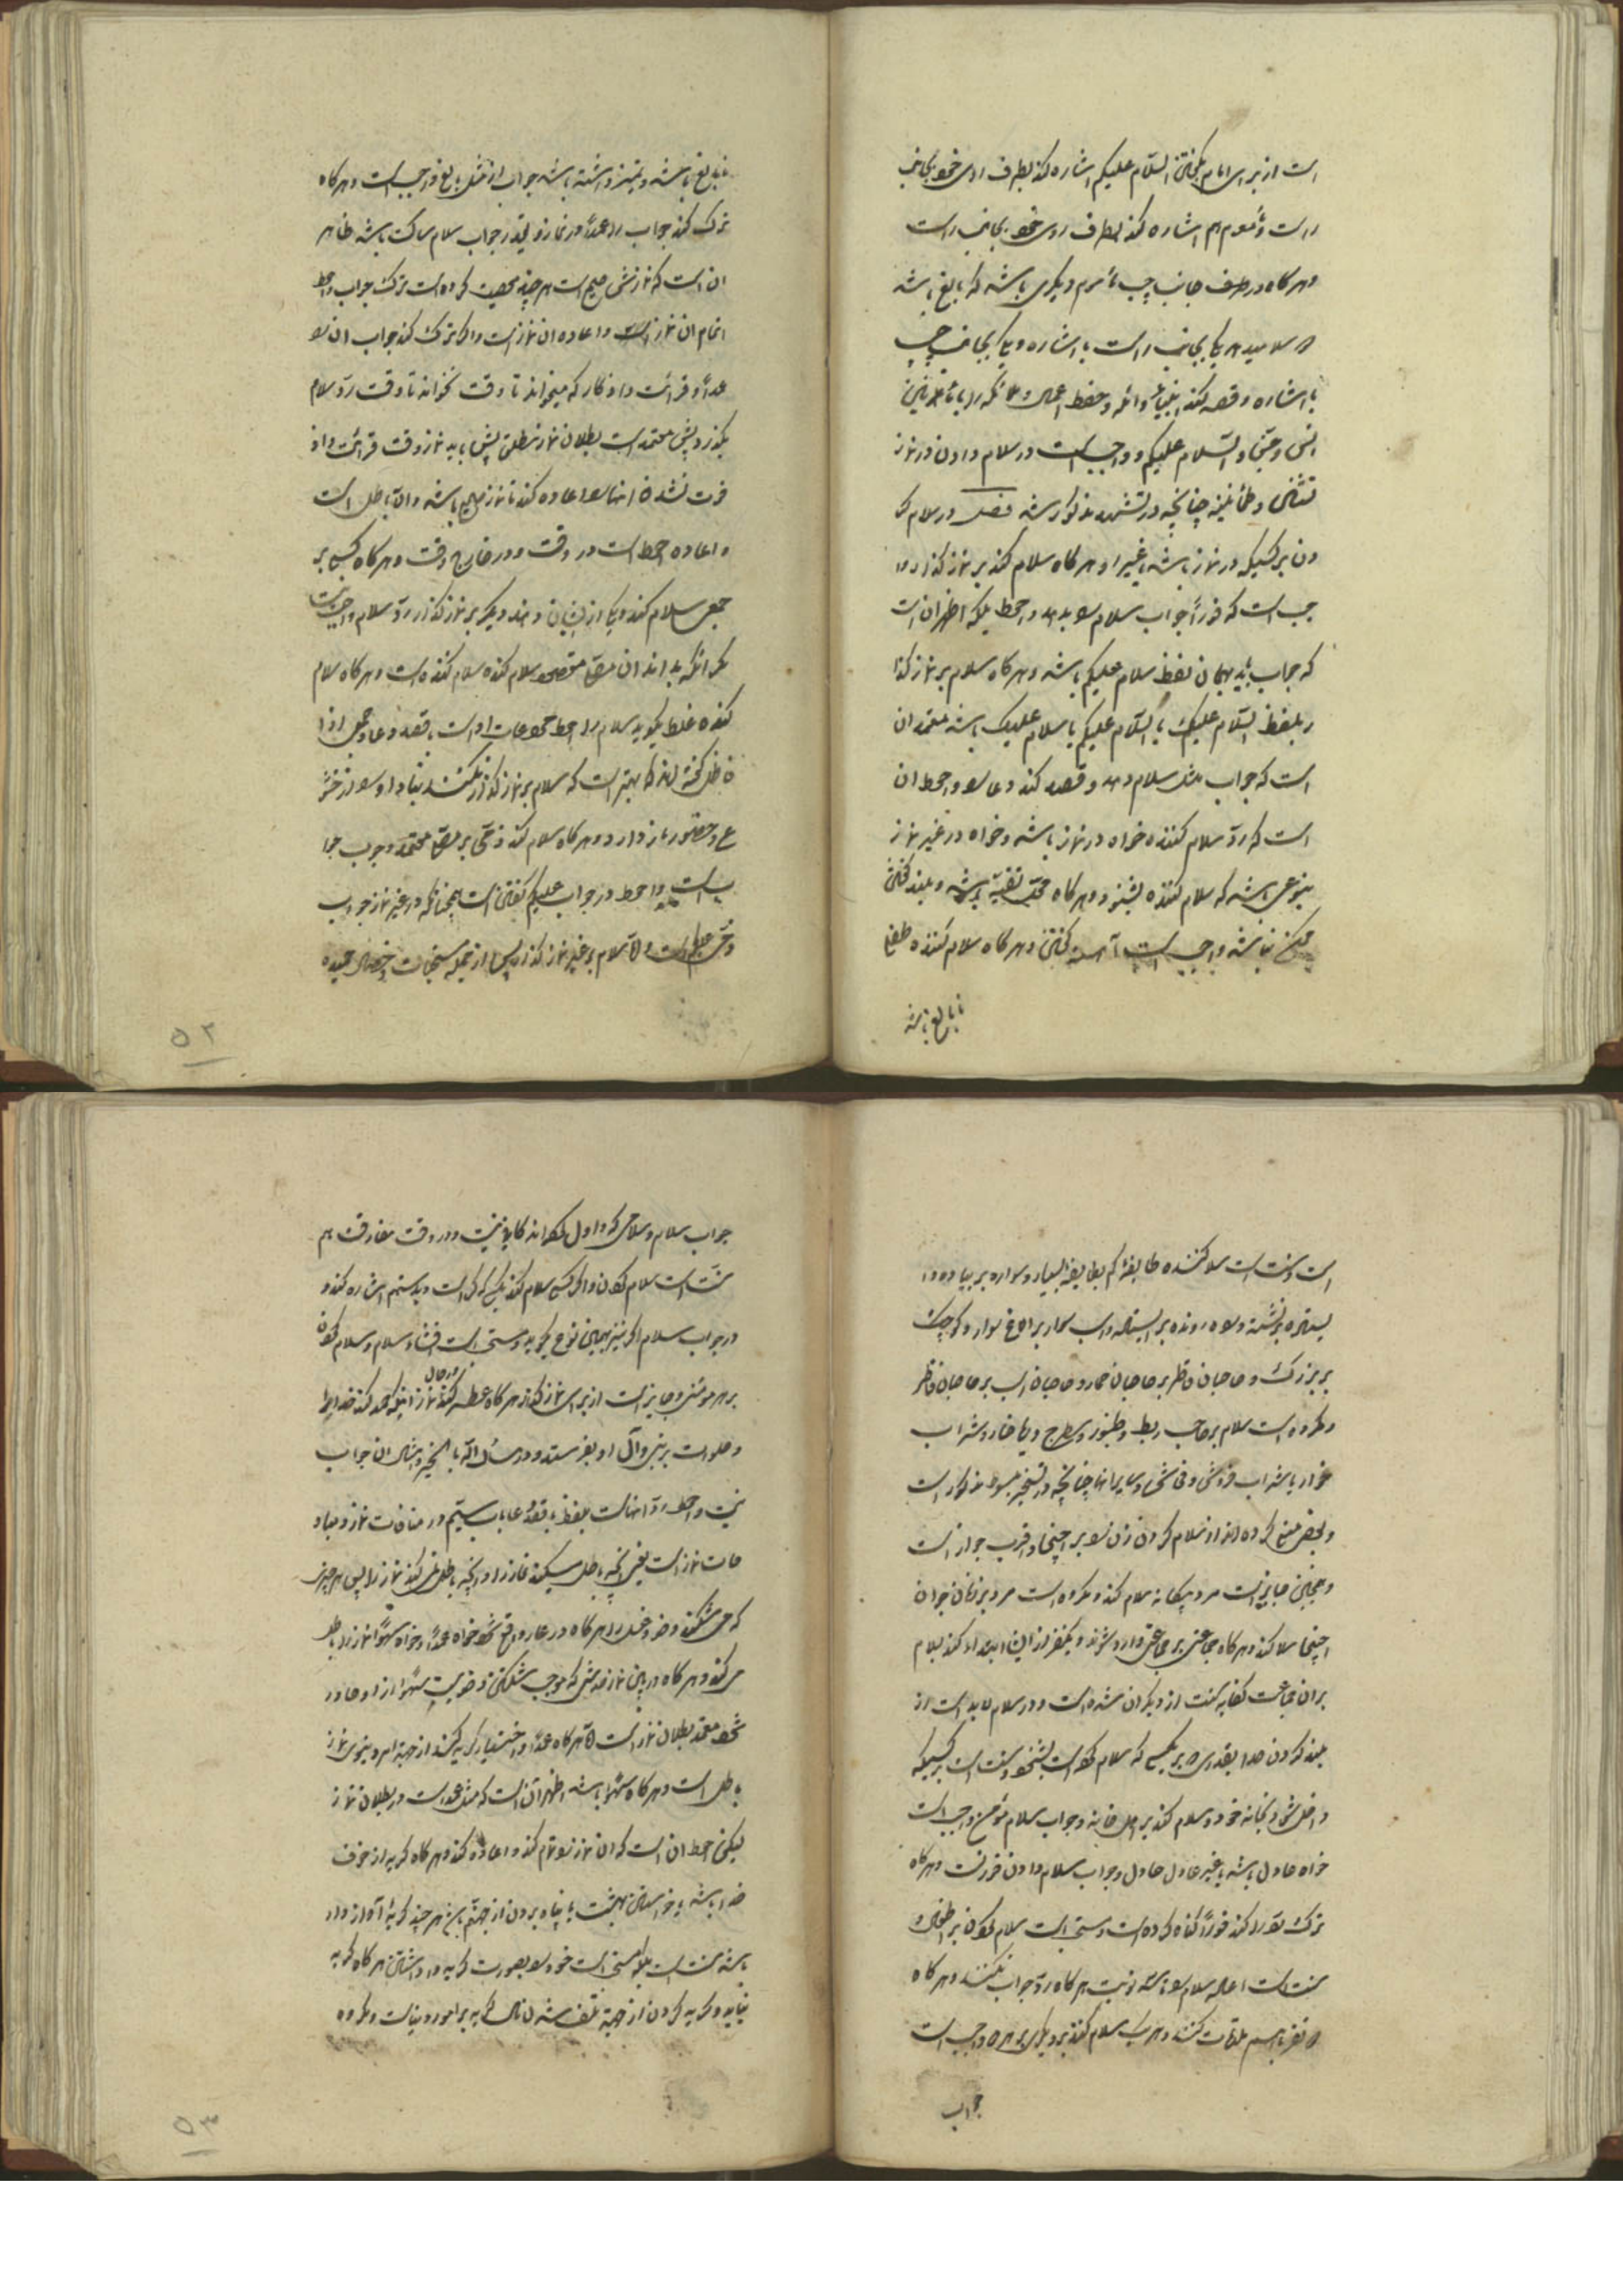 است از برای امام بگفتن السلام علیکم اشاره کند بطرف روی خود بجانب
راست و مأموم هم اشاره کند بطرف روی خود بجانب راست
و هر گاه در طرف جانب چپ مأموم دیگری باشد که بالغ باشد
سلام میدهد یکی بجانب راست با اشاره و یکی بجانب چپ
با اشاره و قصد کند انبیاء و ائمه و حفظ اعمال و ملائکه را با مأمومین
انس و جن و السلام علیکم و واجب است در سلام دادن در نماز
و طمأنینه چنانچه در تشهد مذکور شد فصل در سلام کر
دن بر کسیکه در نماز باشد یا غیر او هر گاه سلام کند بر نماز گذار وا
جب است که فوراً جواب سلام بدهد و احوط بلکه اظهر آن است
که جواب باید بهمان لفظ سلام علیکم باشد و هر گاه سلام بر نماز گذا
ر بلفظ السلام علیک یا السلام علیکم یا سلام علیک باشد معتمد آن
است که جواب مثل سلام دهد و قصد کند دعا و احوط آن
است که رد سلام کننده خواه در نماز باشد و خواه در غیر نماز
بنوعی باشد که سلام کننده بشنود و هر گاه محل تقیه باشد و بلند گفتن
ممکن نباشد واجب است آهسته گفتن و هر گاه سلام کننده طفل
نابالغ باشد
نابالغ باشد و تمیز داشته باشد جواب او مثل بالغ واجب است و هر گاه
ترک کند جواب را عمداً در نماز و بقدر جواب سلام ساکت باشد ظاهر
آن است که نمازش صحیح است هر چند معصیت کرده است بترک جواب و احوط
اتمام آن نماز است و اعاده آن نماز است و اگر ترک کند جواب آن
عمداً و قرائت و اذکار که میخواند تا وقت نخواند تا وقت رد سلام
بگذرد پس معتمد است بطلان نماز مطلق پس باید نماز وقت قرائت و اذ
فوت نشده آنها را اعاده کند تا نماز صحیح باشد و الا باطل است
و اعاده احوط است در وقت و در خارج وقت و هر گاه کسی بر
جمعی سلام کند و یکی از ایشان رد دیگر بر نماز گذار رد سلام واجب نیست
مگر آنکه بداند آن مقصود سلام کننده است و هر گاه سلام
کننده غلط بگوید سلام را احوط جواب او است بقصد دعا
بهتر است که سلام بر نماز گذار نکنند مبادا او را از خشو
ع و حضور باز دارد و هر گاه سلام کند ذمی بر معتمد وجوب جوا
ب است و احوط در جواب علیکم گفتن است همچنانکه در غیر نماز جواب
و اما سلام بر غیر نماز گذار پس از جمله مستحبات و خصال حمیده
۵۲
است و سنت است سلام کننده طایفهٔ کم بطایفه بسیار و سواره بر پیاده و ا
یستاده بر نشسته و رونده بر ایستاده و اسب سوار بر الاغ سوار و کوچک
بر بزرگ و صاحبان قاطر بر صاحبان حمار و صاحبان اسب بر صاحبان قاطر
و مکروه است سلام بر صاحب بربط و طنبور و شطرنج و یا خمار و شراب
خوار یا شراب فروش و فاحش و سایر اینها چنانچه در مذکور است
و بعضی منع کرده اند از سلام کردن زن بر اجنبی و اقرب جواز است
و همچنین جایز است مرد بیگانه سلام کند و مکروه است مرد بر زنان جوان
اجنبی سلام کند و هر گاه جماعتی بر جماعتی وارد شوند و یکنفر از ایشان ابتداء کند بسلام
بر آن جماعت کفایه سنت از دیگران شده است و در سلام لابد است از
بلند کردن صدا بقدری که بر کسی که سلام کرده است بشنود و سنت است بر کسیکه
داخل شود بخانه خود و سلام کند بر اهل خانه و جواب سلام مؤمن واجب است
خواه عادل باشد یا غیر عادل و جواب سلام دادن فوریست و هر گاه
ترک فور را کند فوراً گناه کرده است و مستحب است سلام کردن بر اطفال و
سنت است اعاده سلام هر گاه رد جواب نکنند و هر گاه
نفر باهم ملاقات کنند و هر یک سلام کنند بر دیگری بر هر واجب است
جواب
جواب سلام و سلامی که اول کرده اند کافی نیست و در وقت مفارقت هم
سنت است سلام کردن و اگر کسی سلام کند بکسی که کر است و بدستهم اشاره کند و
در جواب سلام کر نیز بهمین نوع بگوید و مستحب است افشاء سلام و سلام کردن
بر هر مؤمن و جایز است از برای نماز گذار هر گاه عطسه کند در حال نماز اینکه حمد کند خدا را
و صلوات بر نبی و آل او بفرستد و جواب
نیست و احوط رد آنهاست بلفظ و بقصد دعا باب بیستم در منافات نماز و مبطلا
ت نماز است یعنی آنچه باطل میکند نماز را و آنچه باطل نمیکند نماز را پس هر چیزی
که می شکند وضو و غسل را هر گاه در نماز واقع شود خواه عمداً و خواه سهواً نماز را باطل
می کند و هر گاه در بین نماز حدثی که موجب شکستن وضو است سهواً از او صادر
شود معتمد بطلان نماز است و هر گاه عمداً و اختیاراً گریه کند از جهة امر دنیوی نماز
باطل است و هر گاه سهواً باشد اظهر آنست که مثل عمد است در بطلان نماز
لیکن احوط آن است که آن نماز را تمام کند و اعاده کند و هر گاه گریه از خوف
خدا باشد یا خواستن بهشت یا پناه بردن از جهنم هر چند گریه آواز دار
باشد سنت است بلکه مستحب است خود را بصورت گریه وا داشتن هر گاه گریه
نیاید و گریه کردن از جهة تلف شدن مال گریه بر امور دنیاست و مکروه
۵۳